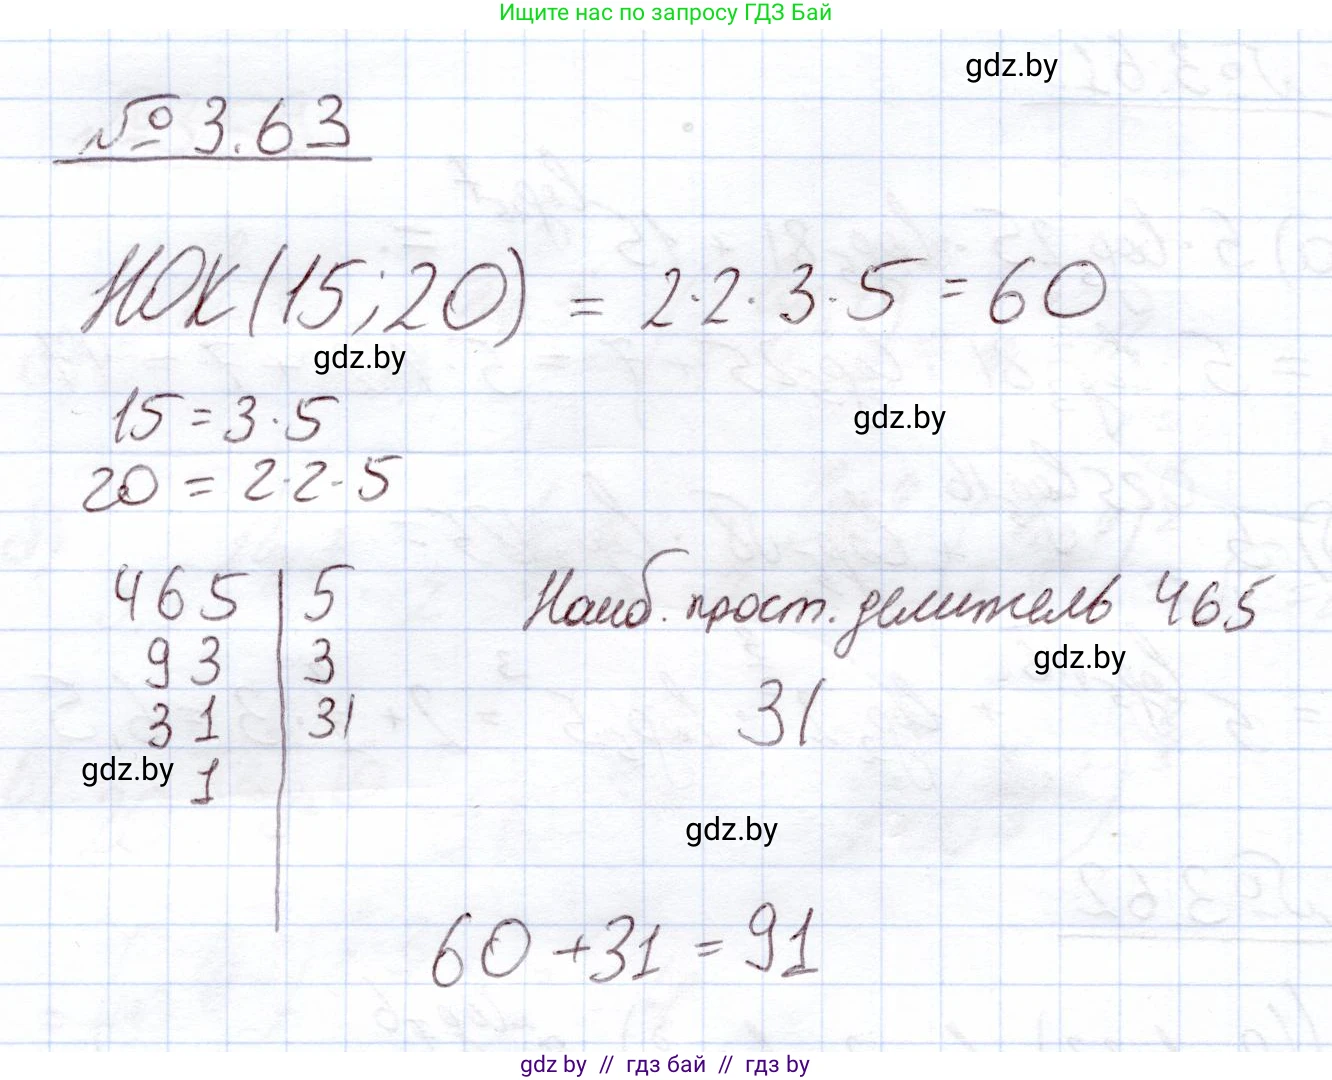 Ищите нас по запросу ГДЗ Бай
gdz.by
№ 3.63
НОК(15;20) = 2·2·3·5 = 60
gdz.by
15 = 3·5
gdz.by
20 = 2·2·5
465 | 5
93 | 3
31 | 31
1
Наиб. прост. делитель 465
gdz.by
31
gdz.by
gdz.by
60 + 31 = 91
gdz.by // гдз бай // гдз by